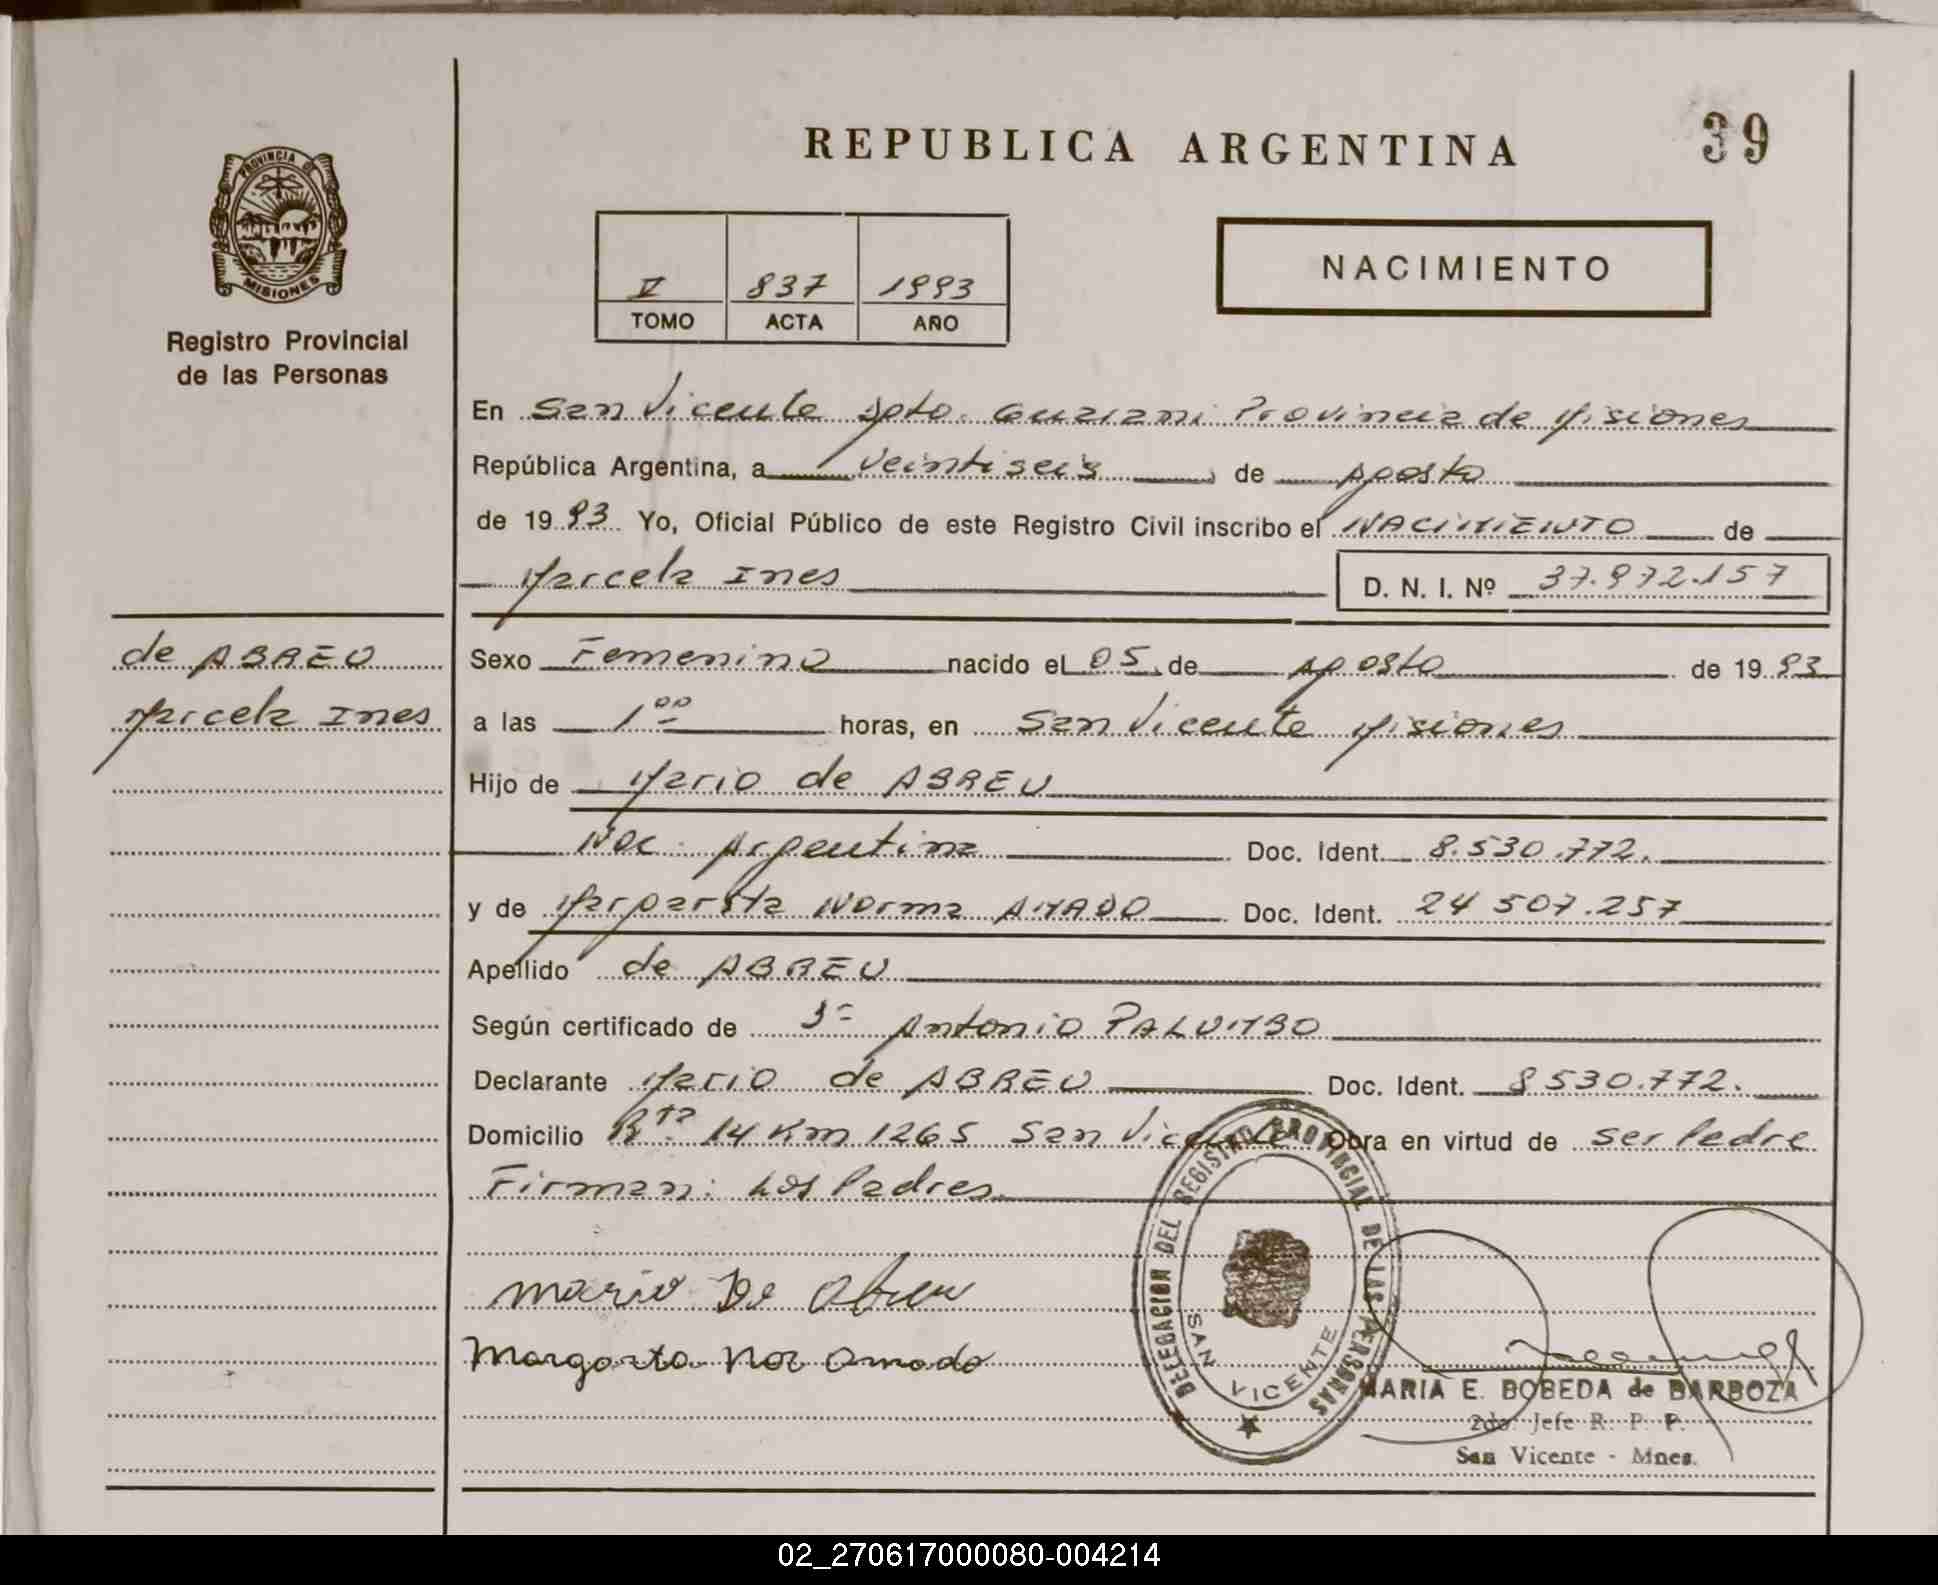 REPUBLICA ARGENTINA
39
PROVINCIA DE
MISIONES
Registro Provincial
de las Personas
V 837 1993
TOMO ACTA AÑO
NACIMIENTO
En San Vicente Dpto. Guarani Provincia de Misiones
República Argentina, a veintiseis de Agosto
de 1993 Yo, Oficial Público de este Registro Civil inscribo el NACIMIENTO de
Marcela Ines
D. N. I. Nº 37.972.157
de ABREU
Marcela Ines
Sexo Femenino nacido el 05 de Agosto de 1993
a las 1 00 horas, en San Vicente Misiones
Hijo de Mario de ABREU
Nac. Argentina Doc. Ident. 8.530.772.
y de Margarita Norma AMADO Doc. Ident. 24 507.257
Apellido de ABREU
Según certificado de Antonio PALUMBO
Declarante Mario de ABREU Doc. Ident. 8 530.772.
Domicilio Rta 14 Km 1265 San Vicente Obra en virtud de ser Padre
Firman: Los Padres.
Mario De Abreu
Margarita Nor Amado
DELEGACION DEL REGISTRO PROVINCIAL DE LAS PERSONAS
SAN VICENTE
MARIA E. BOBEDA de BARBOZA
2do. Jefe R. P. P.
San Vicente - Mnes.
02_270617000080-004214